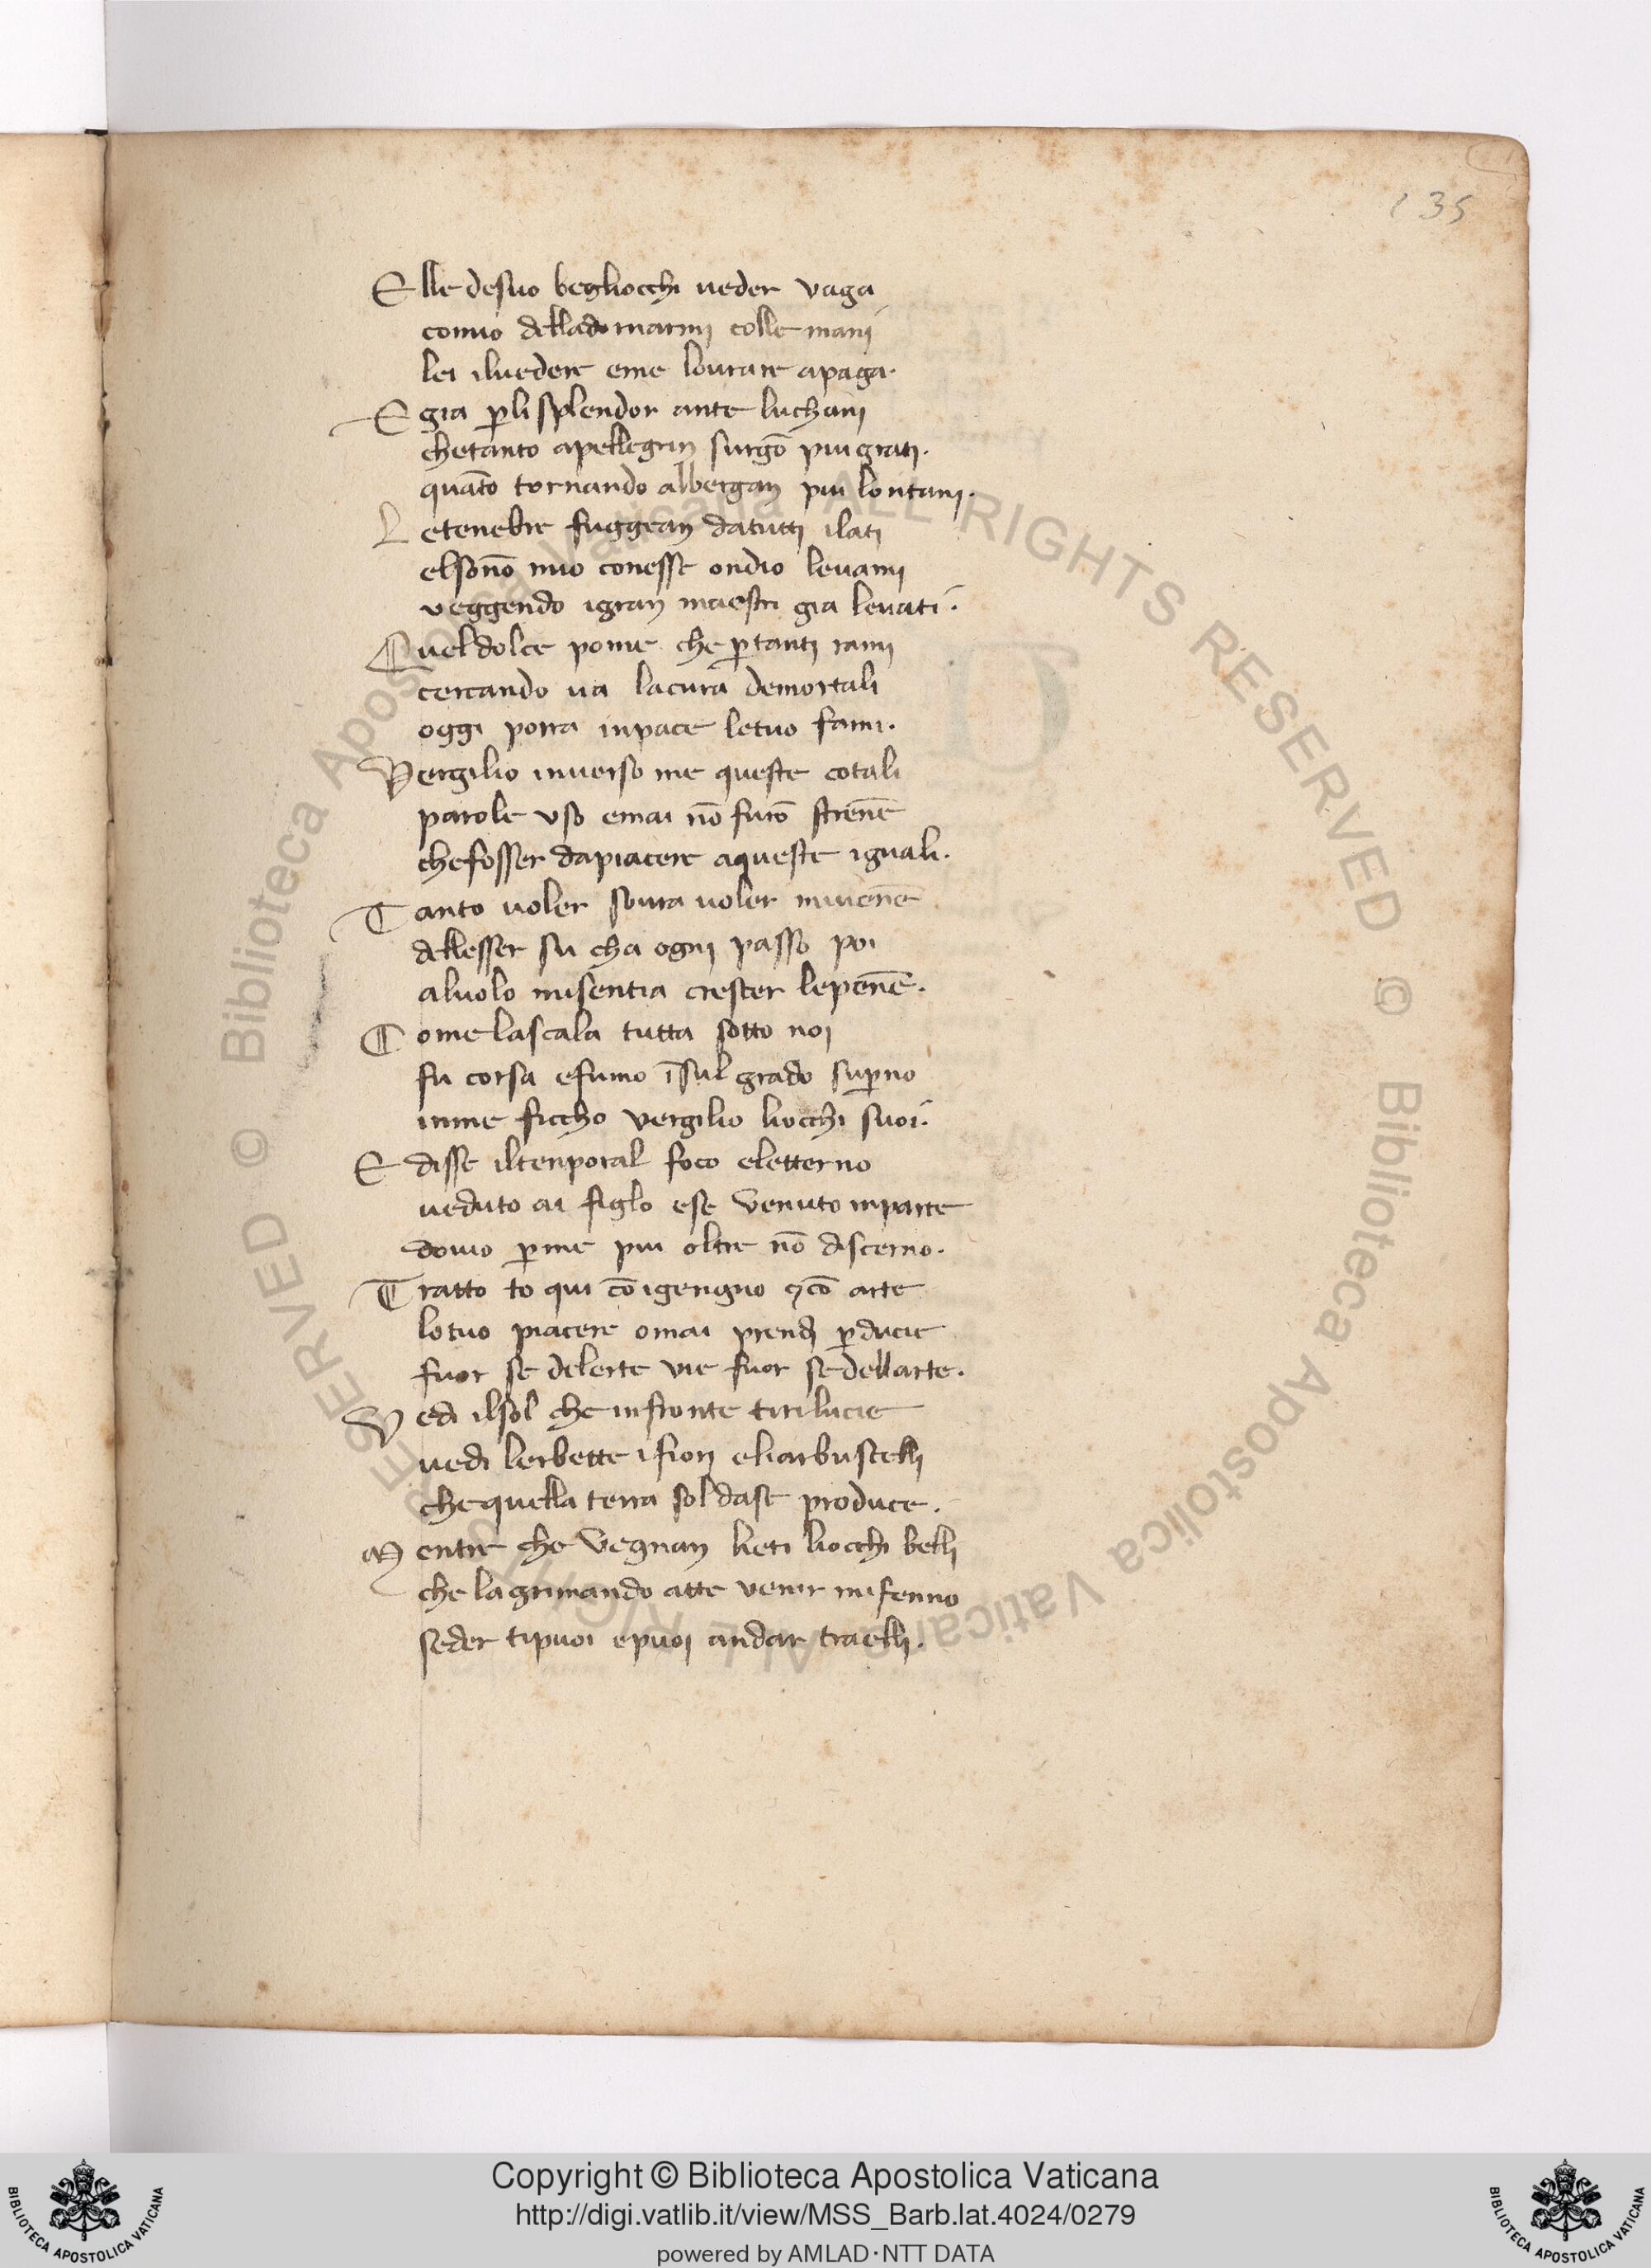 135
Elle desuo begliocchi ueder vaga
comio delladornarmi colle mani
lei iluedere eme lourare apaga.
E gia ꝑli splendor ante luchani
chetanto apellegrin surgō piu grati.
quāto tornando albergan piu lontani.
Letenebre fuggean datutti ilati
elsonō mio conesse ondio leuami
veggendo igran maestri gia leuati.
Quel dolce pome che ꝑtanti rami
cercando ua lacura demortali
oggi porra inpace letuo fami.
Vergilio inuerso me queste cotali
parole vso emai nō furō strenē
chefosser dapiacere aqueste iguali.
Tanto uoler soura uoler miuenē
dellesser su cha ogni passo poi
aluolo misentia crescer lepenē.
Come lascala tutta sotto noi
fu corsa efumo īsul grado suꝑno
inme ficcho vergilio liocchi suoi.
E disse iltenporal foco eletterno
ueduto ai figlo ese venuto inparte
douio ꝑme piu oltre nō discerno.
Tratto to qui cō igengno ⁊cō arte
lotuo piacere omai prendi ꝑducie
fuor se delerte vie fuor sedellarte.
Vedi ilsol che infronte tirilucie
uedi lerbette ifiori eliarbuscelli
chequella terra sol dase produce.
Mentre che vegnan lieti liocchi belli
che lagrimando atte venir mifenno
seder tipuoi epuoi andar traelli.
Copyright © Biblioteca Apostolica Vaticana
http://digi.vatlib.it/view/MSS_Barb.lat.4024/0279
powered by AMLAD·NTT DATA
BIBLIOTECA APOSTOLICA VATICANA
BIBLIOTECA APOSTOLICA VATICANA
© Biblioteca Apostolica Vaticana ALL RIGHTS RESERVED © Biblioteca Apostolica Vaticana ALL RIGHTS RESERVED